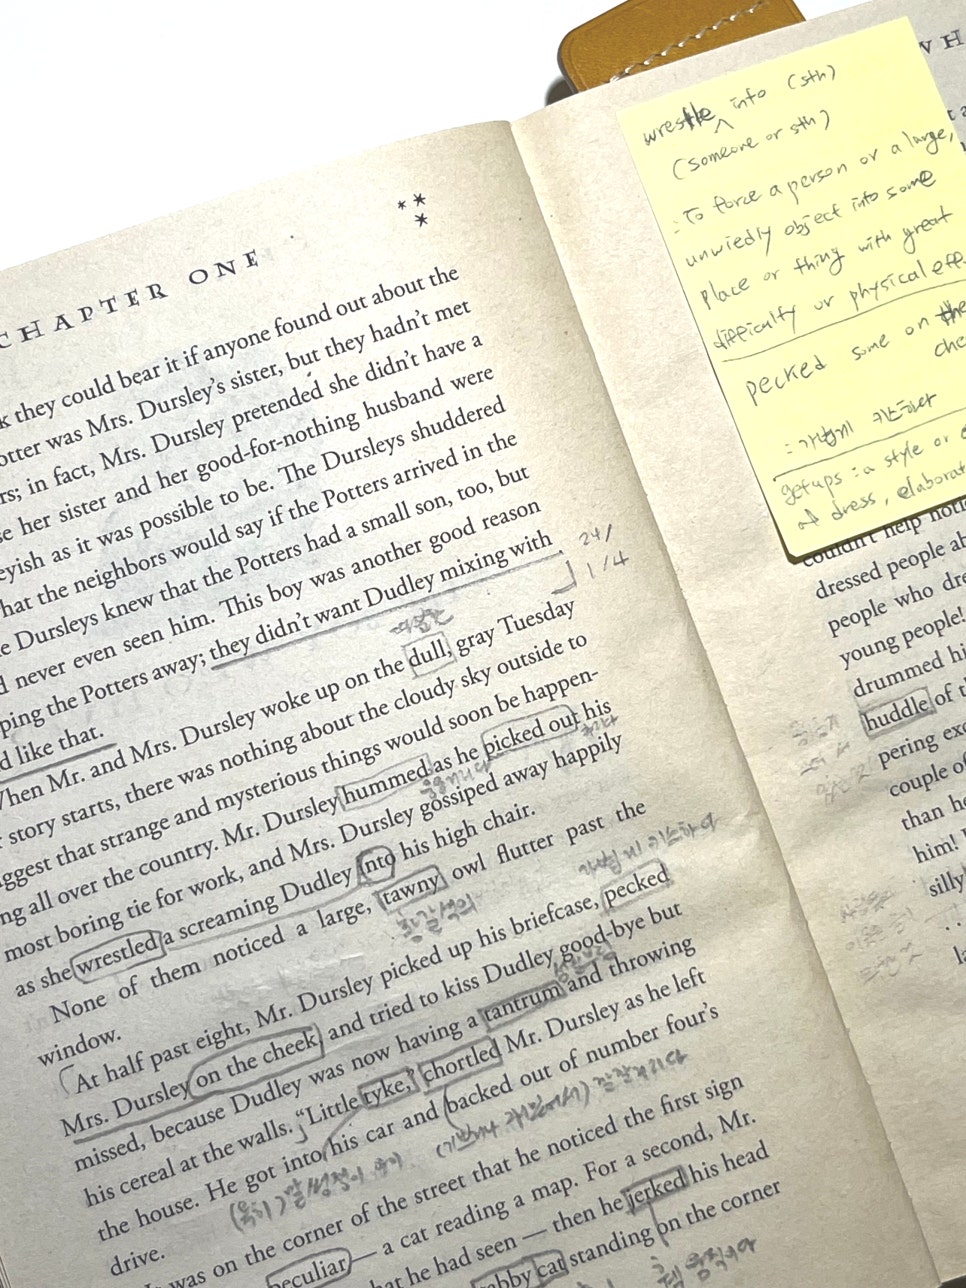 CHAPTER ONE
they could bear it if anyone found out about the
was Mrs. Dursley's sister, but they hadn't met
in fact, Mrs. Dursley pretended she didn't have a
her sister and her good-for-nothing husband were
as it was possible to be. The Dursleys shuddered
the neighbors would say if the Potters arrived in the
Dursleys knew that the Potters had a small son, too, but
never even seen him. This boy was another good reason
the Potters away; they didn't want Dudley mixing with
24/
1/4
like that.
When Mr. and Mrs. Dursley woke up on the dull, gray Tuesday
story starts, there was nothing about the cloudy sky outside to
that strange and mysterious things would soon be happen-
all over the country. Mr. Dursley hummed as he picked out his
most boring tie for work, and Mrs. Dursley gossiped away happily
as she wrestled a screaming Dudley into his high chair.
None of them noticed a large, tawny owl flutter past the
window.
가볍게 키스하다
At half past eight, Mr. Dursley picked up his briefcase, pecked
Mrs. Dursley on the cheek, and tried to kiss Dudley good-bye but
missed, because Dudley was now having a tantrum and throwing
his cereal at the walls. "Little tyke," chortled Mr. Dursley as he left
the house. He got into his car and backed out of number four's
drive.
was on the corner of the street that he noticed the first sign
peculiar — a cat reading a map. For a second, Mr.
what he had seen — then he jerked his head
tabby cat standing on the corner
wrestle into (sth)
(someone or sth)
: To force a person or a large,
unwiedly object into some
place or thing with great
difficulty or physical
pecked some on the
: 가볍게 키스하다
getups : a style or
of dress,
couldn't help
dressed people
people who
young people!
drummed
huddle of
pering
couple of
than
him!